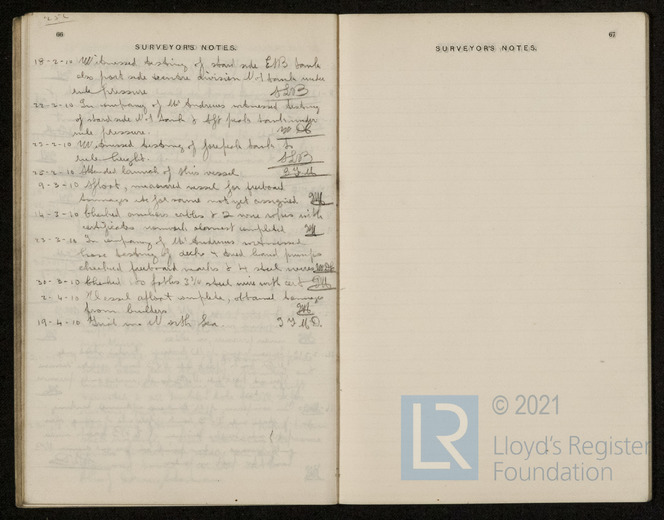 66
SURVEYOR'S NOTES.
18-2-10 Witnessed testing of starb side E&B tank
also port side centre division No 1 tank under
rule pressure
22-2-10 In company of Mr Andrews witnessed testing
of starb side No 1 tank & aft peak tank under
rule pressure.
23-2-10 Witnessed testing of forepeak tank to
rule height.
25-2-10 Attended launch of this vessel.
9-3-10 Afloat, measured vessel for freeboard
tonnages etc for name not yet assigned
14-3-10 Checked anchors cables & 2 wire ropes with
certificates nearly completed
23-3-10 In company of Mr Andrews witnessed
hose testing of decks & hand pumps
checked freeboard marks & steel wires
30-3-10 Checked fathos 3 1/4 steel wire with cert
2-4-10 Vessel afloat complete, obtained tonnages
from builders
19-4-10 Trial in North Sea.
67
SURVEYOR'S NOTES.
LR © 2021
Lloyd's Register
Foundation